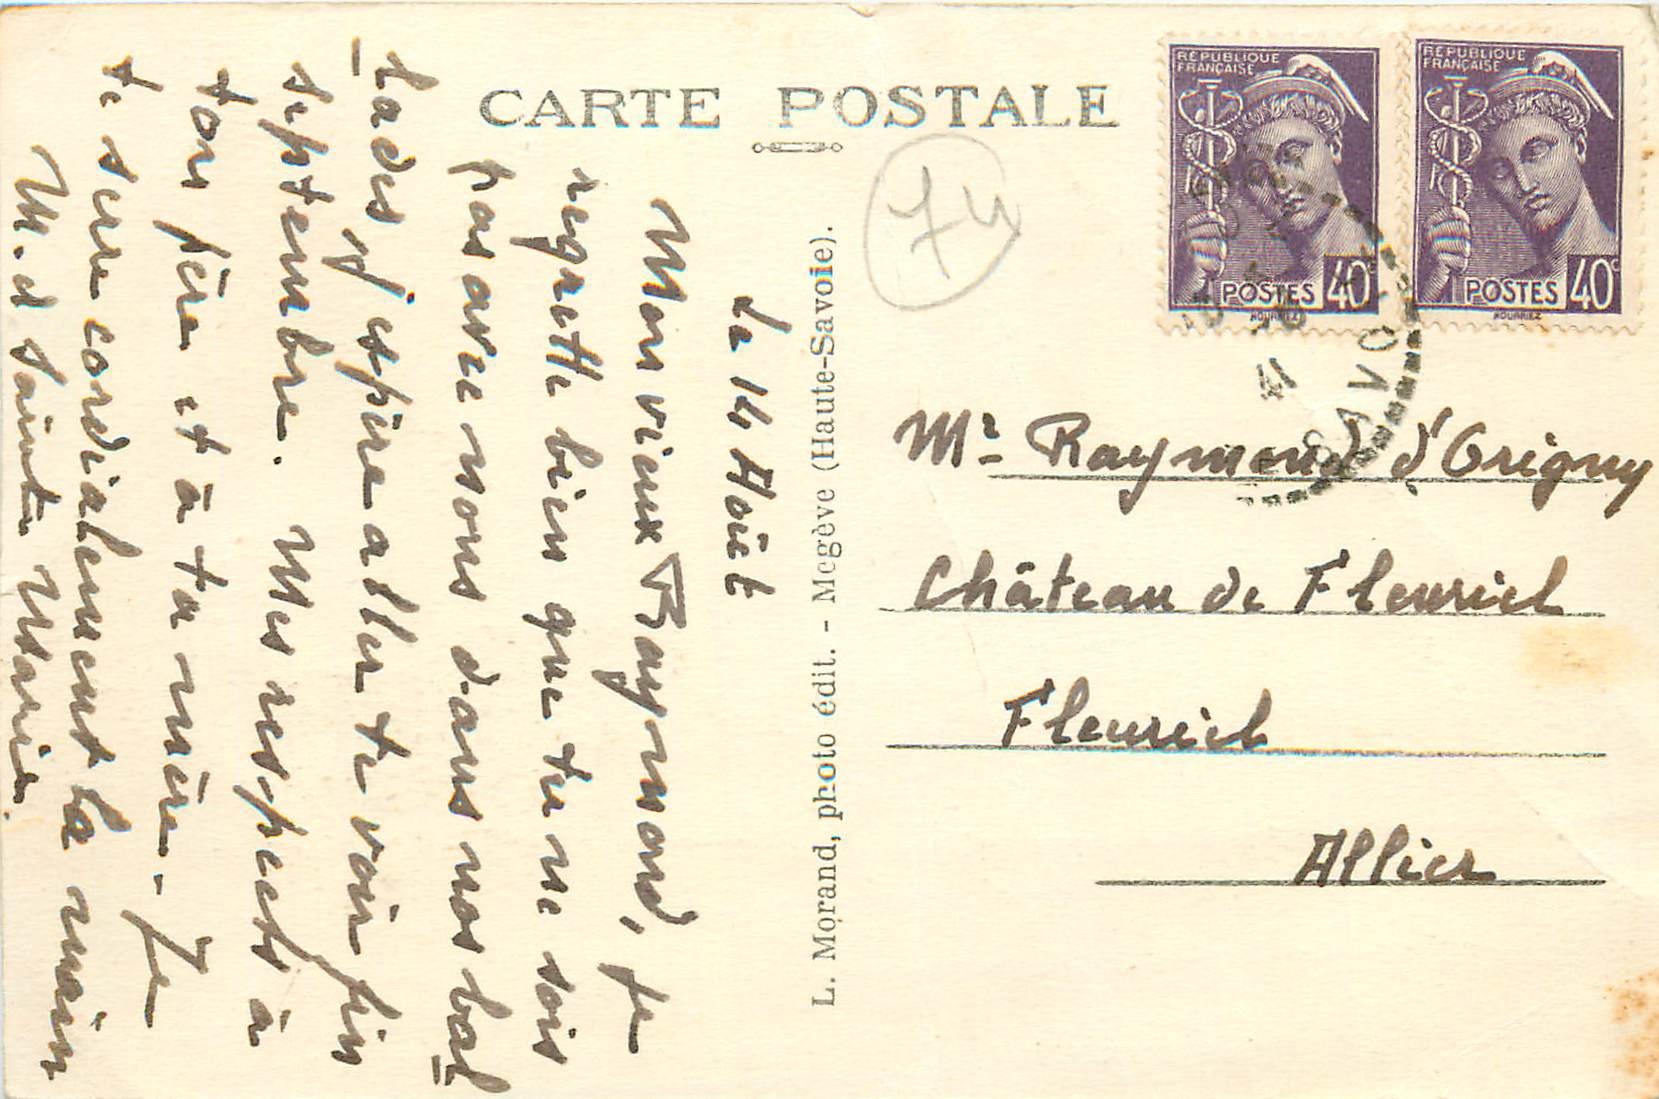 CARTE POSTALE
RÉPUBLIQUE
FRANÇAISE
POSTES 40c
RÉPUBLIQUE
FRANÇAISE
POSTES 40c
74
SAVOIE
41
Le 14 Août
Mon vieux Raymond, Je
regrette bien que tu ne sois
pas avec nous dans nos bal
lades j'espère aller te voir fin
septembre. Mes respects à
ton père et à ta mère. Je
te serre cordialement la main
M. d Sainte Marie.
L. Morand, photo édit. - Megève (Haute-Savoie).
Mr Raymond d'Origny
Château de Fleuriel
Fleuriel
Allier